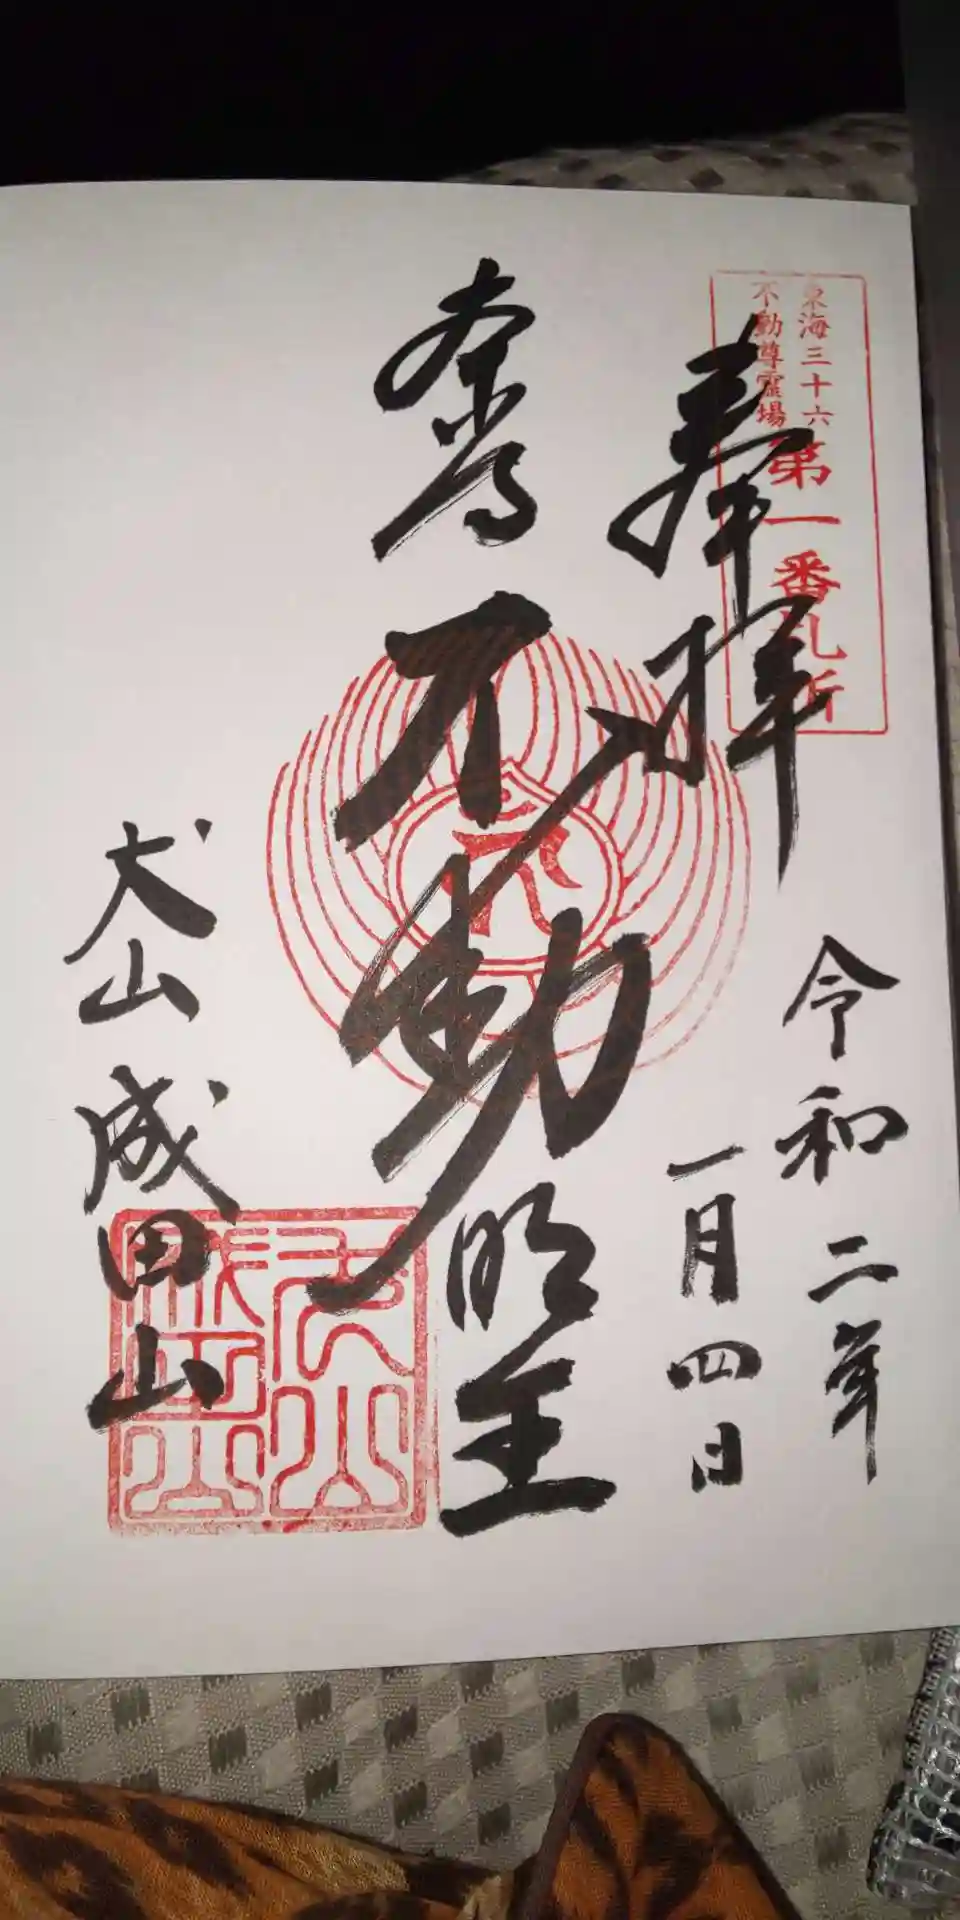 東海三十六
不動尊霊場
第一番札所
奉拝
令和二年
一月四日
不動明王
犬山成田山
犬山
成田山